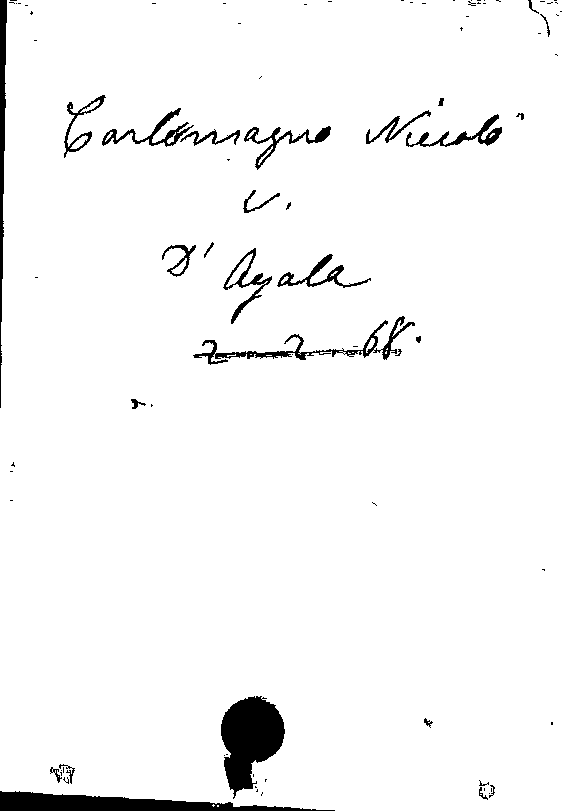 Carlomagno Nicolò
v.
D'Ayala
2 - 2 - 68.